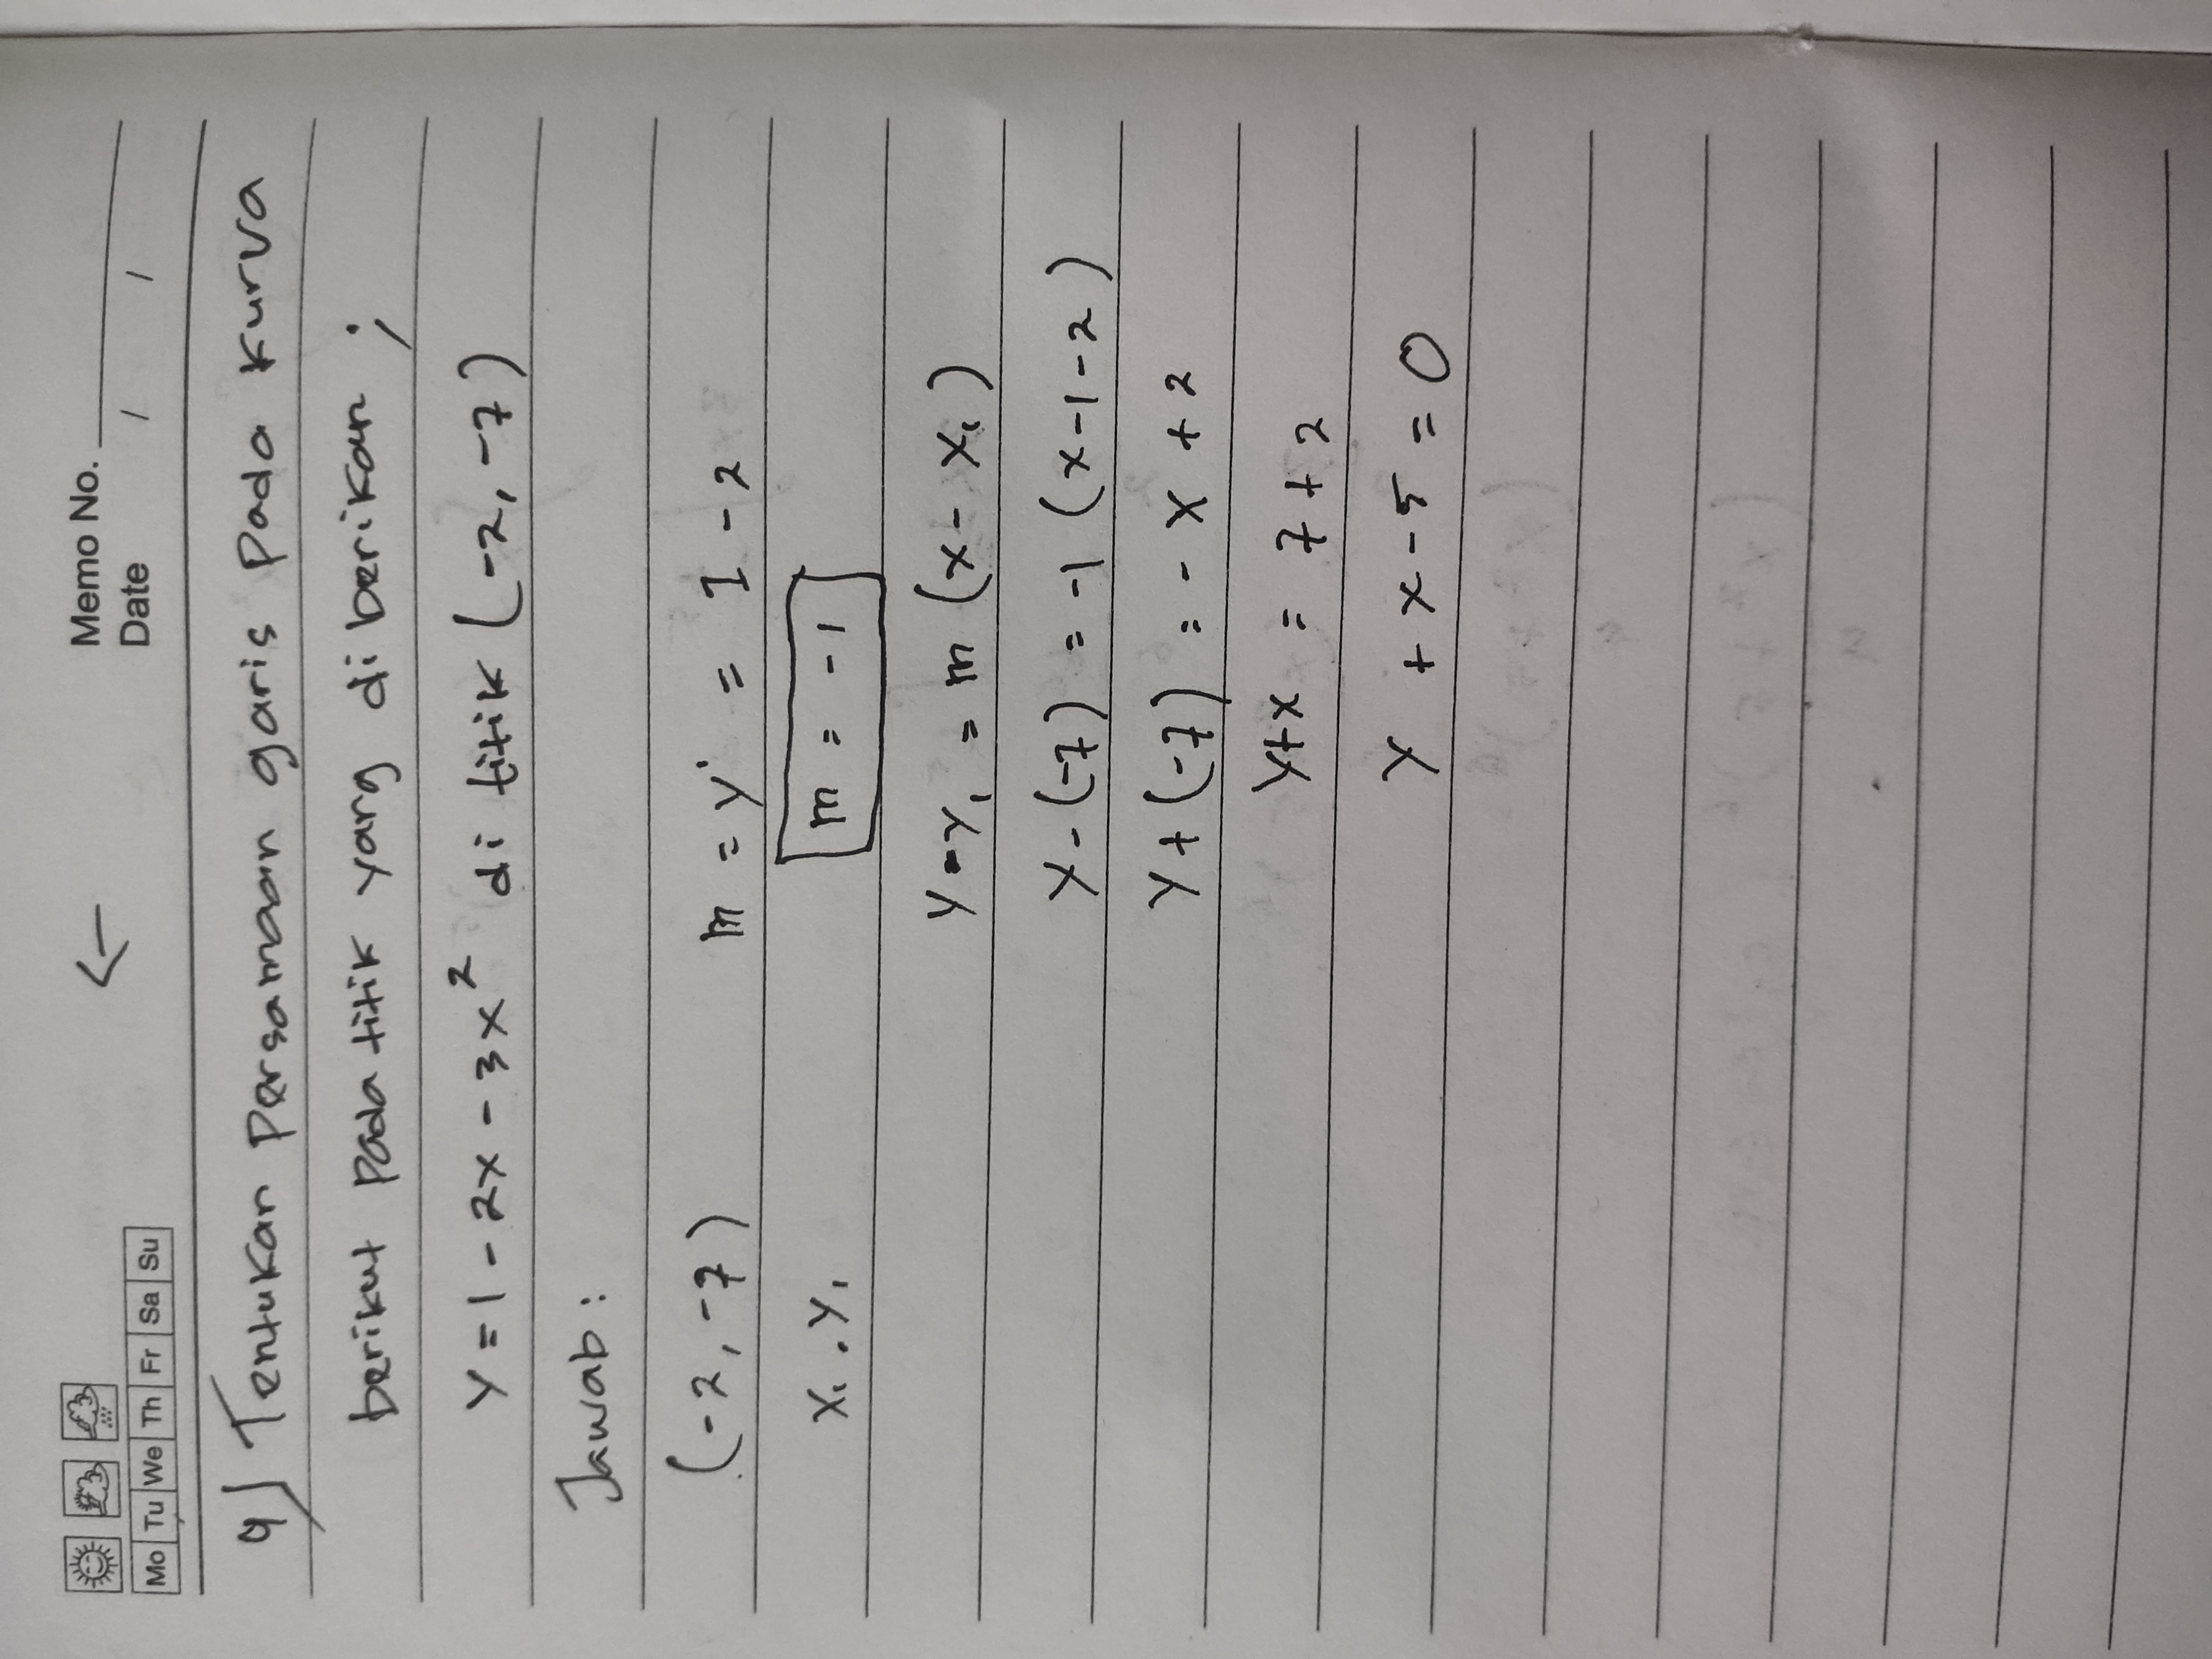 Memo No.
Date / /
Mo Tu We Th Fr Sa Su
9) Tentukan persamaan garis pada kurva
berikut pada titik yang diberikan ;
y = 1 - 2x - 3x² di titik (-2, -7)
Jawab :
(-2, -7) m = y' = 1 - 2
x₁ . y₁ m = -1
y - y₁ = m (x - x₁)
y - (-7) = -1 (x-1-2)
y + (-7) = - x + 2
y+x = 7 + 2
y + x - 5 = 0